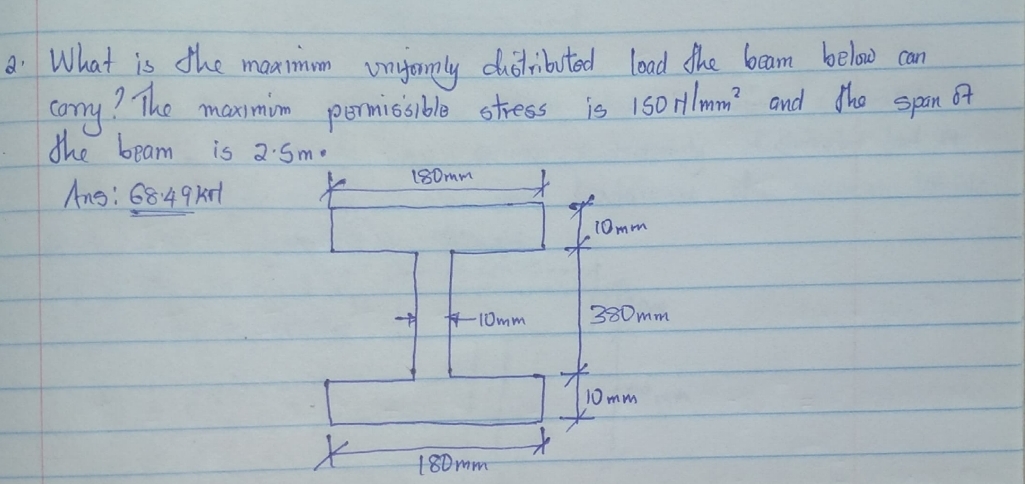 2. What is the maximum uniformly distributed load the beam below can
carry? The maximum permissible stress is 150 N/mm² and the span of
the beam is 2.5m.
Ans: 68.49kN
180mm
10mm
10mm
380mm
10mm
180mm